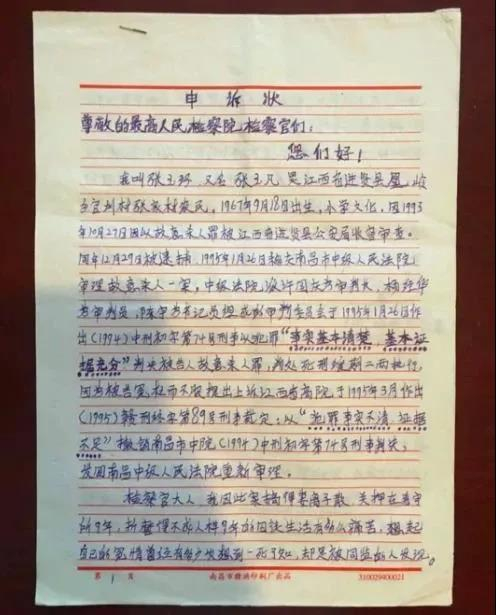 申诉状
尊敬的最高人民检察院检察官们:
您们好!
我叫张玉环 又名 张玉凡 是江西省进贤县凰岭
乡官圳村张家村农民,1967年9月18日出生,小学文化,因1993
年10月27日因以故意杀人罪被江西省进贤县公安局收容审查。
同年12月29日被逮捕,1995年1月26日南昌市中级人民法院
审理故意杀人一案,中级法院 审判长,杨
为审判员, 书记员组成 审判委员会于1995年1月26日作
出(1994)中刑初字第74号刑事以犯罪“事实基本清楚,基本证
据充分”判决被告人故意杀人罪,判处死刑缓期二两执行,
因为被告冤枉而不服提出上诉江西省高院于1995年3月作出
(1995)赣刑终字第89号刑事裁定:以“犯罪事实不清,证据
不足”撤销南昌市中院(1994)中刑初字第74号刑事判决,
发回南昌中级人民法院重新审理。
检察官大人,我因此案搞得妻离子散,关押在看守
所9年,折磨得不成人样9年的囚徒生活有多么痛苦,想起
自己的冤情曾经有多少次想到一死了知,却是被同监的人发现。
第 1 页 南昌市赣滨印刷厂出品 310029400021